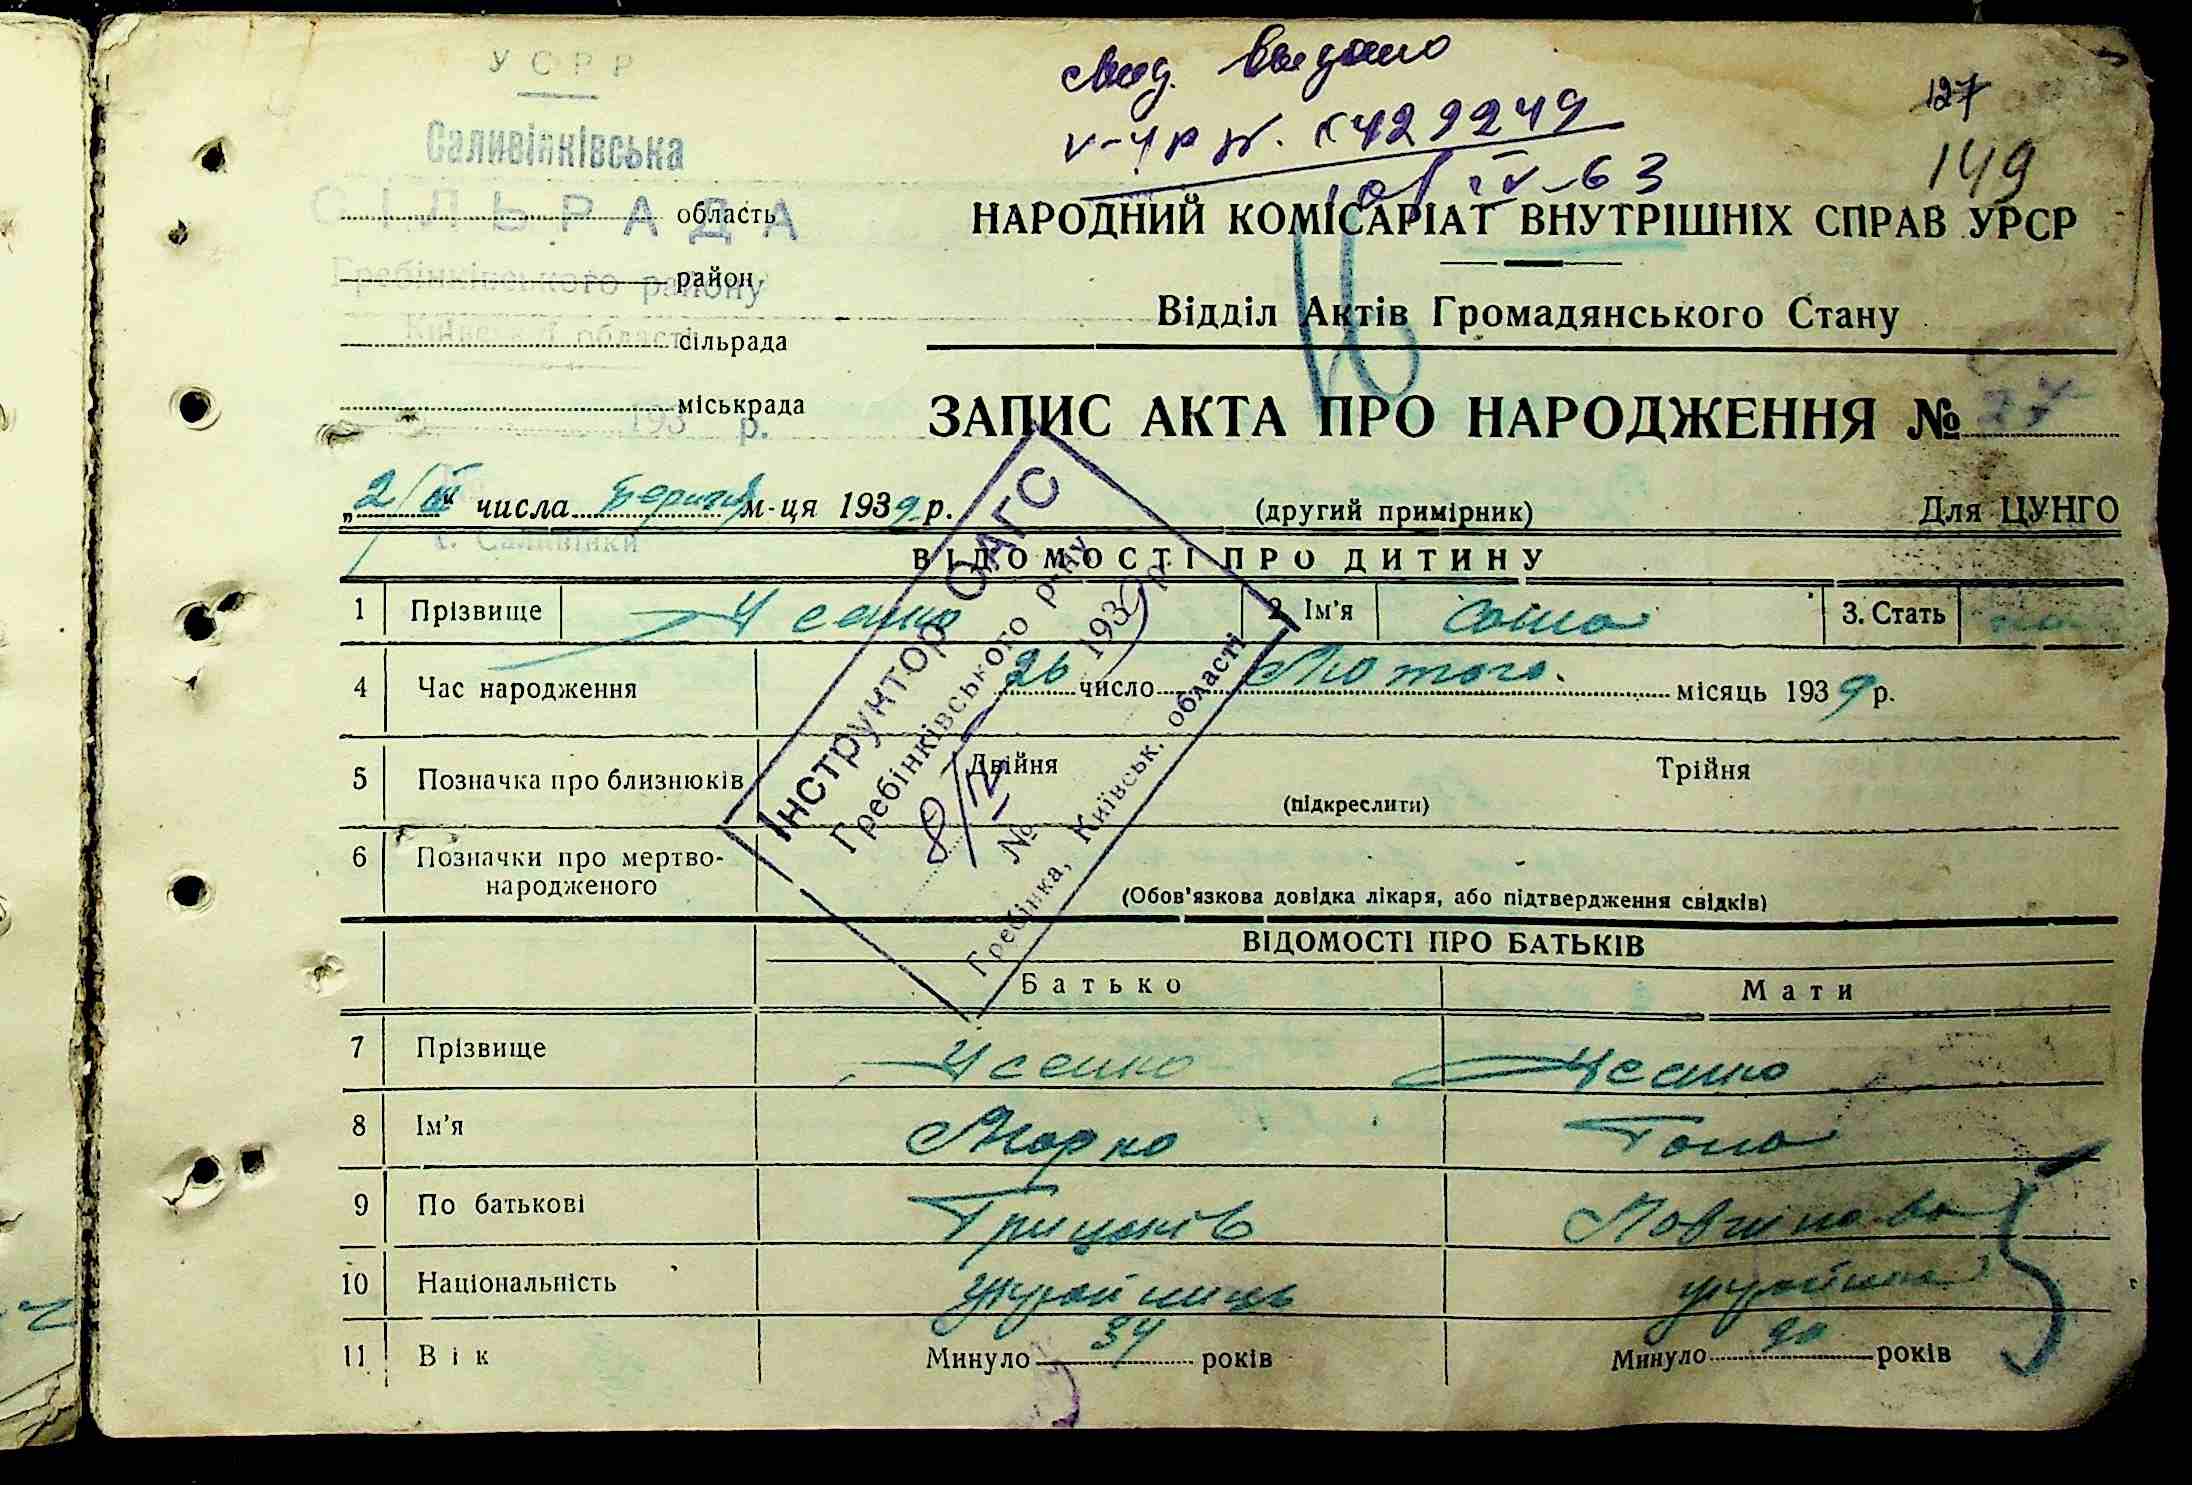 УСРР
Саливінківська
СІЛЬРАДА
Гребінківського району
Київської області
193 р.
с. Саливінки
видано
№. 429249
IV-63
127
149
область
район
сільрада
міськрада
НАРОДНИЙ КОМІСАРІАТ ВНУТРІШНІХ СПРАВ УРСР
16
Відділ Актів Громадянського Стану
ЗАПИС АКТА ПРО НАРОДЖЕННЯ № 27
„2/III“ числа березня м-ця 1939 р. (другий примірник) Для ЦУНГО
ВІДОМОСТІ ПРО ДИТИНУ
1 Прізвище Усенко 2. Ім'я Саша 3. Стать
4 Час народження 26 число Лютого. місяць 1939 р.
5 Позначка про близнюків Двійня Трійня
(підкреслити)
6 Позначки про мертво-
народженого
(Обов'язкова довідка лікаря, або підтвердження свідків)
Інструктор ОАГС
Гребінківського р-ну
8/IV 1939 р.
№
Гребінка, Київськ. області
ВІДОМОСТІ ПРО БАТЬКІВ
Батько Мати
7 Прізвище Усенко Усенко
8 Ім'я Марко
9 По батькові Грицьків
10 Національність українець українка
11 Вік Минуло 34 років Минуло років